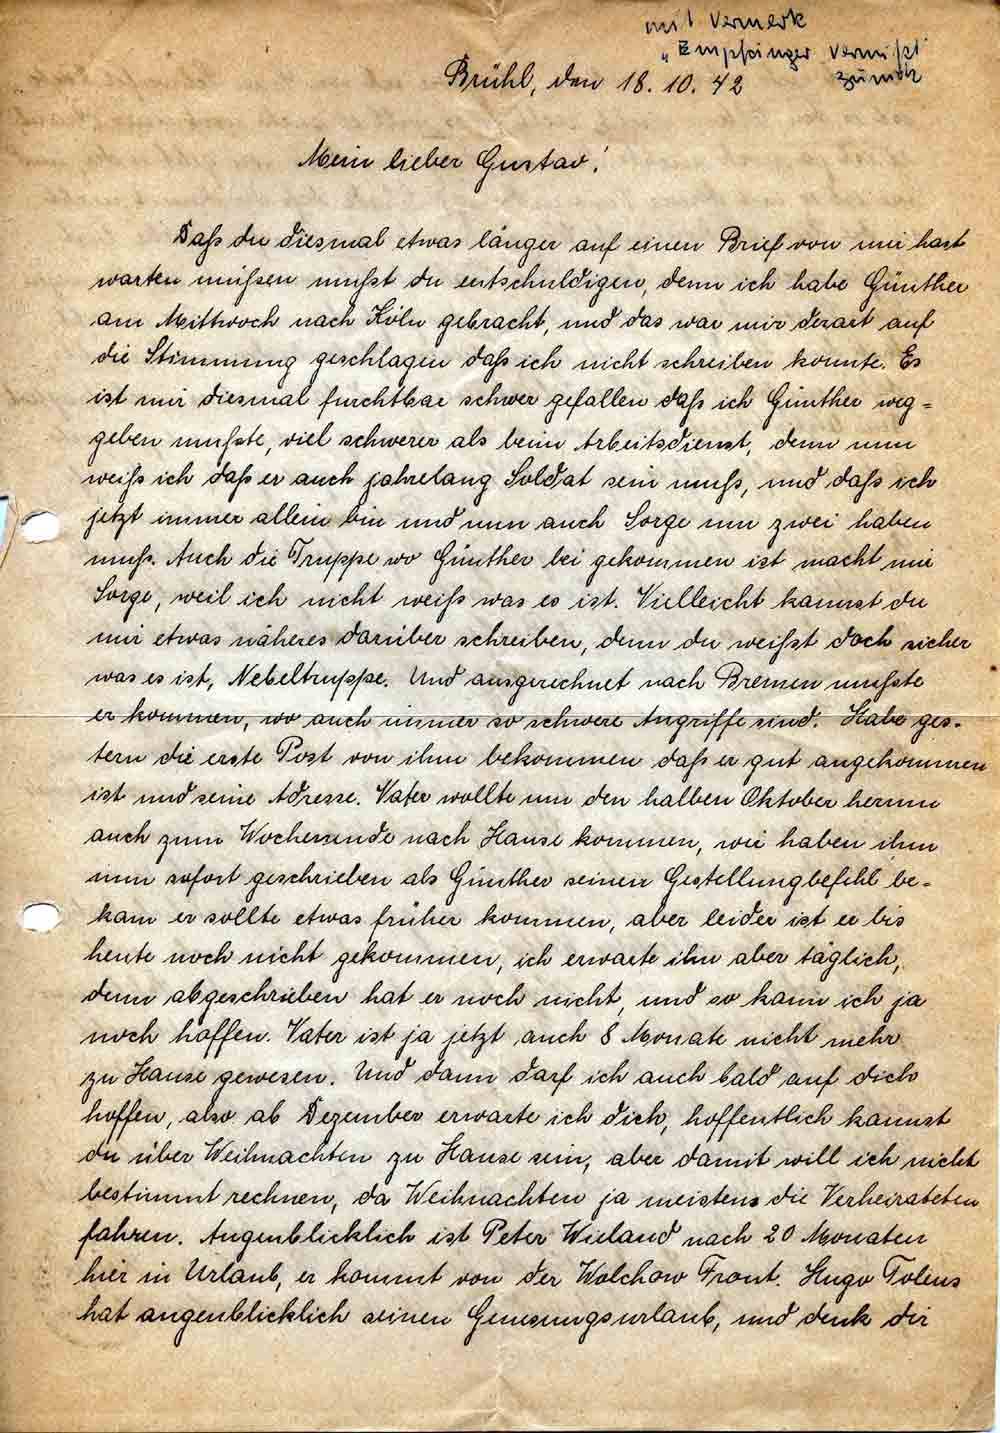 mit Vermerk
"Empfänger vermißt"
zurück
Brühl, den 18.10.42
Mein lieber Gustav!
Daß du diesmal etwas länger auf einen Brief von mir hast
warten müßen mußt du entschuldigen, denn ich habe Günther
am Mittwoch nach Köln gebracht, und das war mir derart auf
die Stimmung geschlagen daß ich nicht schreiben konnte. Es
ist mir diesmal furchtbar schwer gefallen daß ich Günther weg=
geben mußte, viel schwerer als beim Arbeitsdienst, denn nun
weiß ich daß er auch jahrelang Soldat sein muß, und daß ich
jetzt immer allein bin und nun auch Sorge um zwei haben
muß. Auch die Truppe wo Günther bei gekommen ist macht mir
Sorge, weil ich nicht weiß was es ist. Vielleicht kannst du
mir etwas näheres darüber schreiben, denn du weißt doch sicher
was es ist, Nebeltruppe. Und ausgerechnet nach Bremen mußte
er kommen, wo auch immer so schwere Angriffe sind. Habe ges-
tern die erste Post von ihm bekommen daß er gut angekommen
ist und seine Adresse. Vater wollte um den halben Oktober herum
auch zum Wochenende nach Hause kommen, wir haben ihm
nun sofort geschrieben als Günther seinen Gestellungbefehl be-
kam er sollte etwas früher kommen, aber leider ist er bis
heute noch nicht gekommen, ich erwarte ihn aber täglich,
denn abgeschrieben hat er noch nicht, und so kann ich ja
noch hoffen. Vater ist ja jetzt auch 8 Monate nicht mehr
zu Hause gewesen. Und dann darf ich auch bald auf dich
hoffen, also ab Dezember erwarte ich dich, hoffentlich kannst
du über Weihnachten zu Hause sein, aber damit will ich nicht
bestimmt rechnen, da Weihnachten ja meistens die Verheirateten
fahren. Augenblicklich ist Peter Wieland nach 20 Monaten
hier in Urlaub, er kommt von der Wolchow Front. Hugo
hat augenblicklich seinen Genesungsurlaub, und denk dir